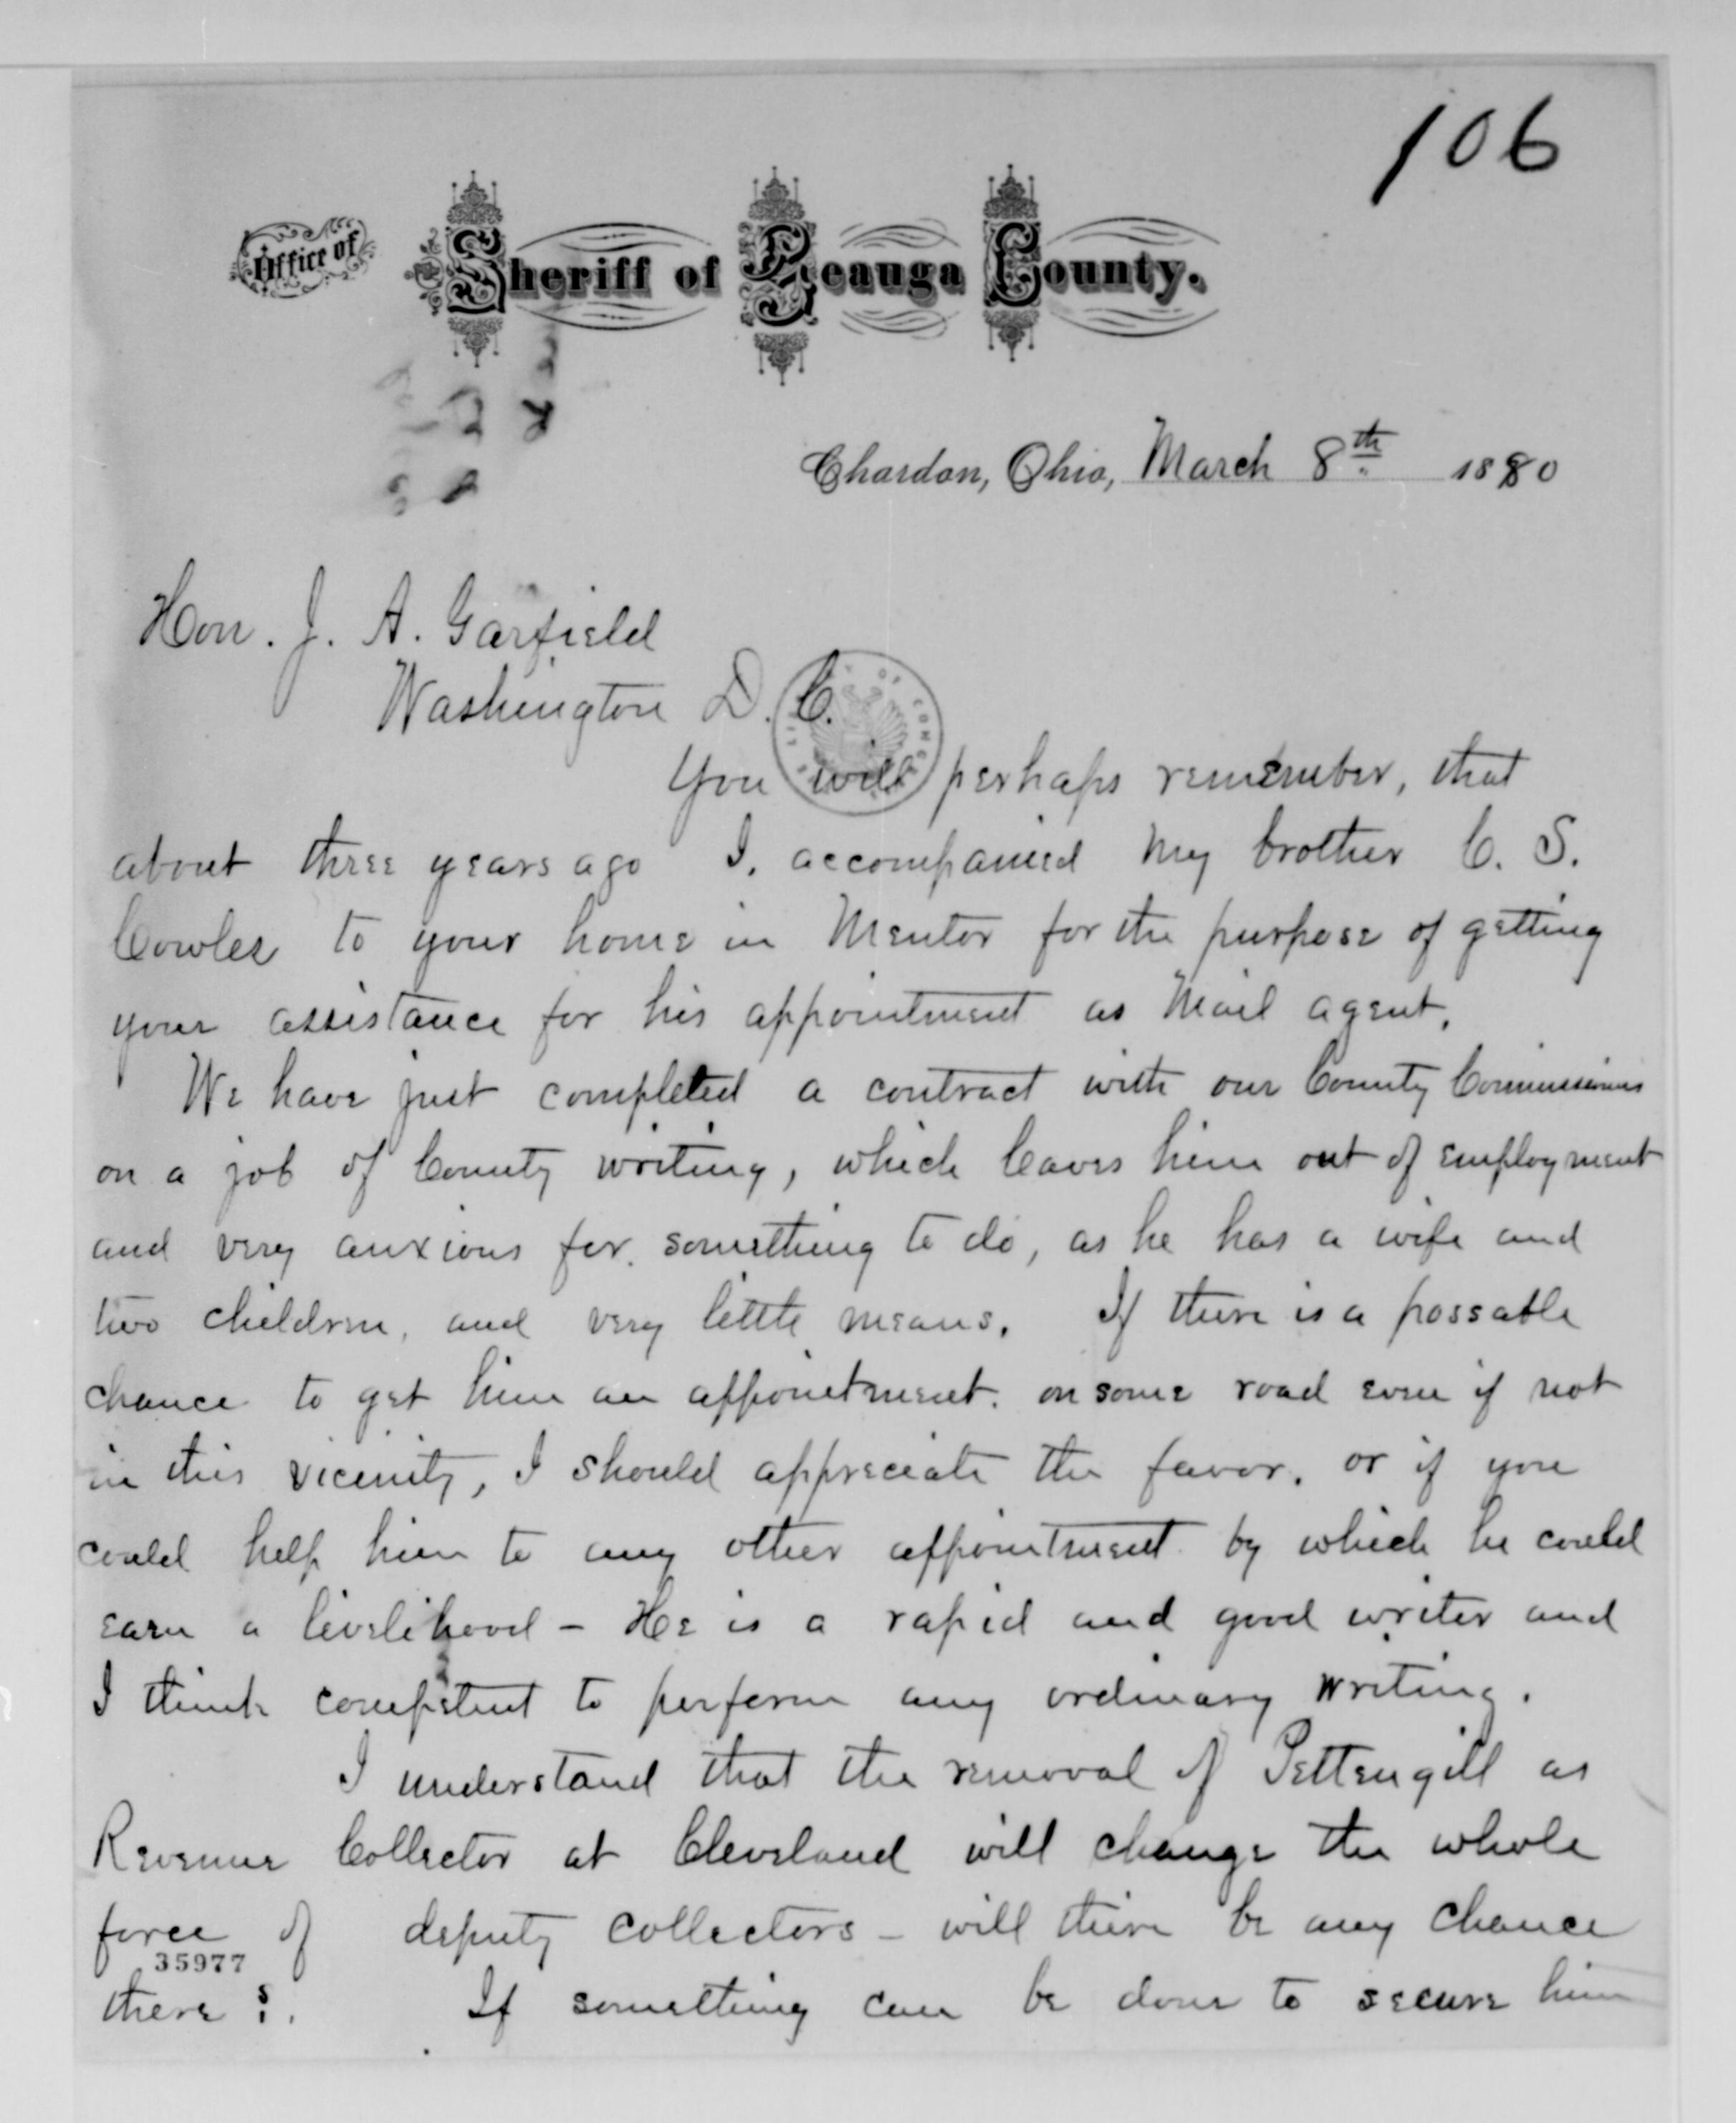 106
Office of Sheriff of Geauga County.
Chardon, Ohio, March 8th 1880
Hon. J. A. Garfield
Washington D. C.
You will perhaps remember, that
about three years ago I. accompanied my brother C. S.
Cowles to your home in Mentor for the purpose of getting
your assistance for his appointment as Mail agent.
We have just completed a contract with our County Commissioners
on a job of County writing, which leaves him out of employment
and very anxious for something to do, as he has a wife and
two children, and very little means. If there is a possable
chance to get him an appointment. on some road even if not
in this vicinity, I should appreciate the favor. or if you
could help him to any other appointment by which he could
earn a livelihood - He is a rapid and good writer and
I think competent to perform any ordinary writing.
I understand that the removal of Pettengill as
Revenue Collector at Cleveland will change the whole
force of deputy collectors - will there be any chance
35977
there ?. If something can be done to secure him